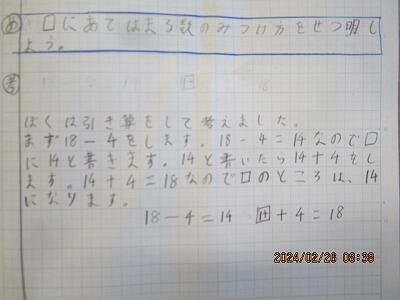 め □にあてはまる数のみつけ方をせつ明し
よう。
考
ぼくは引き算をして考えました。
まず18-4をします。18-4=14なので□
に14と書きます。14と書いたら14+4をし
ます。14+4=18なので□のところは、14
になります。
18-4=14 14+4=18
2024/02/26